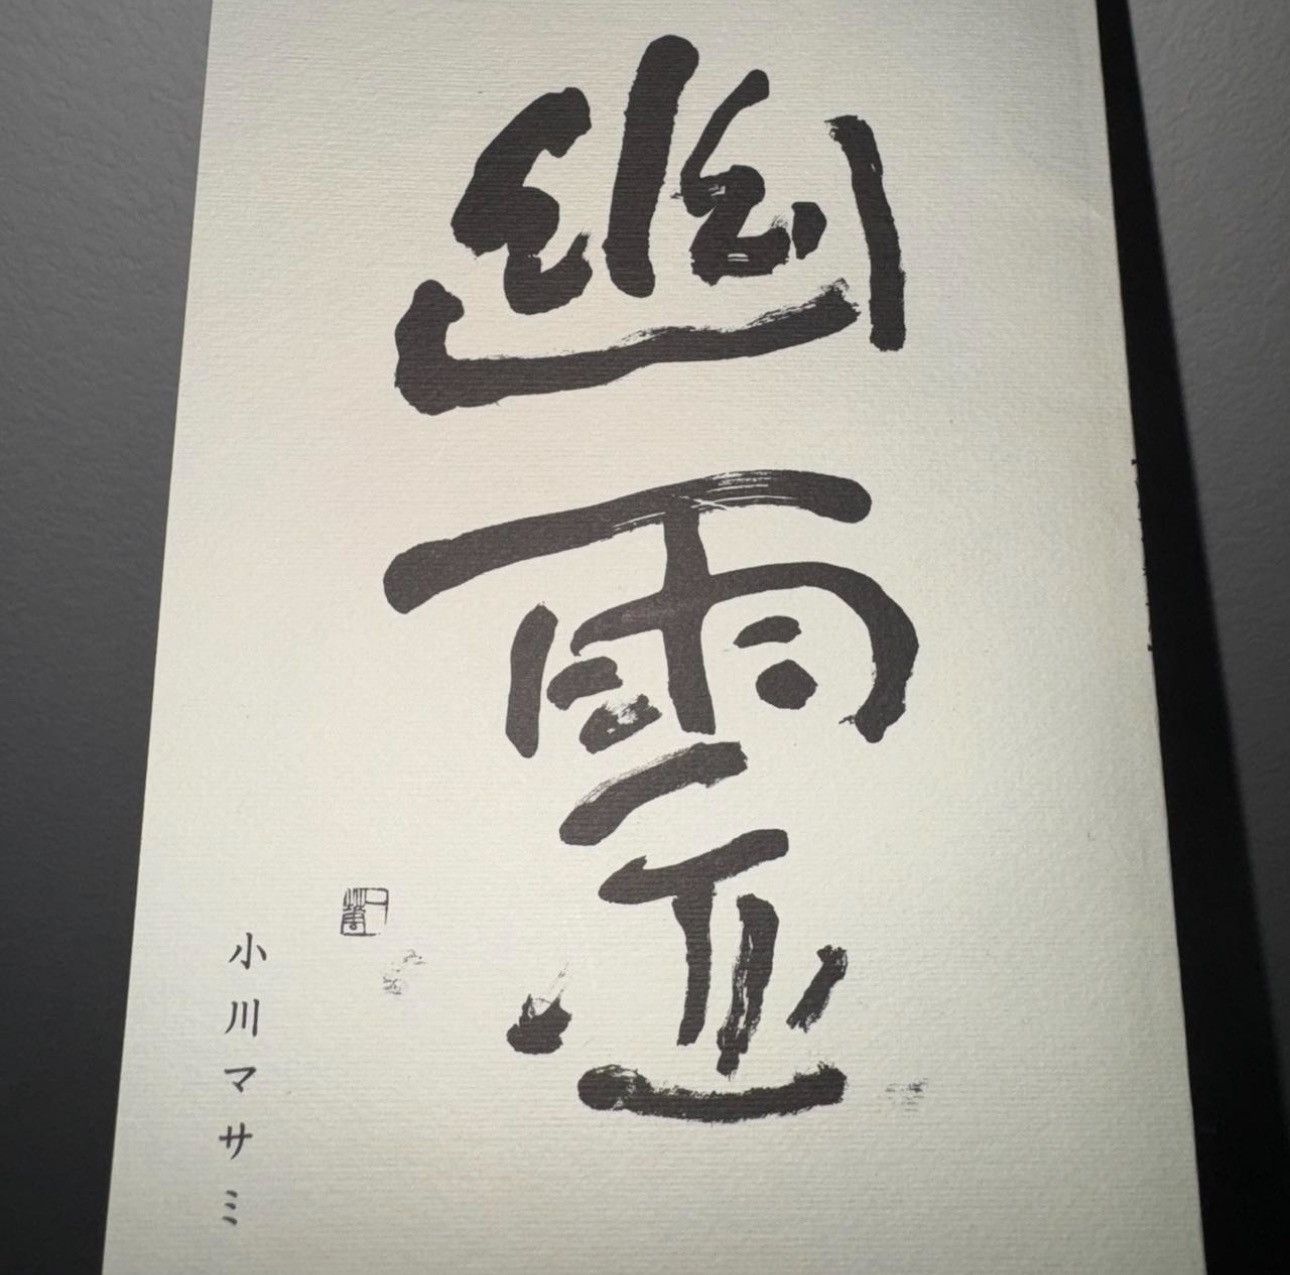 幽霊
小川マサミ